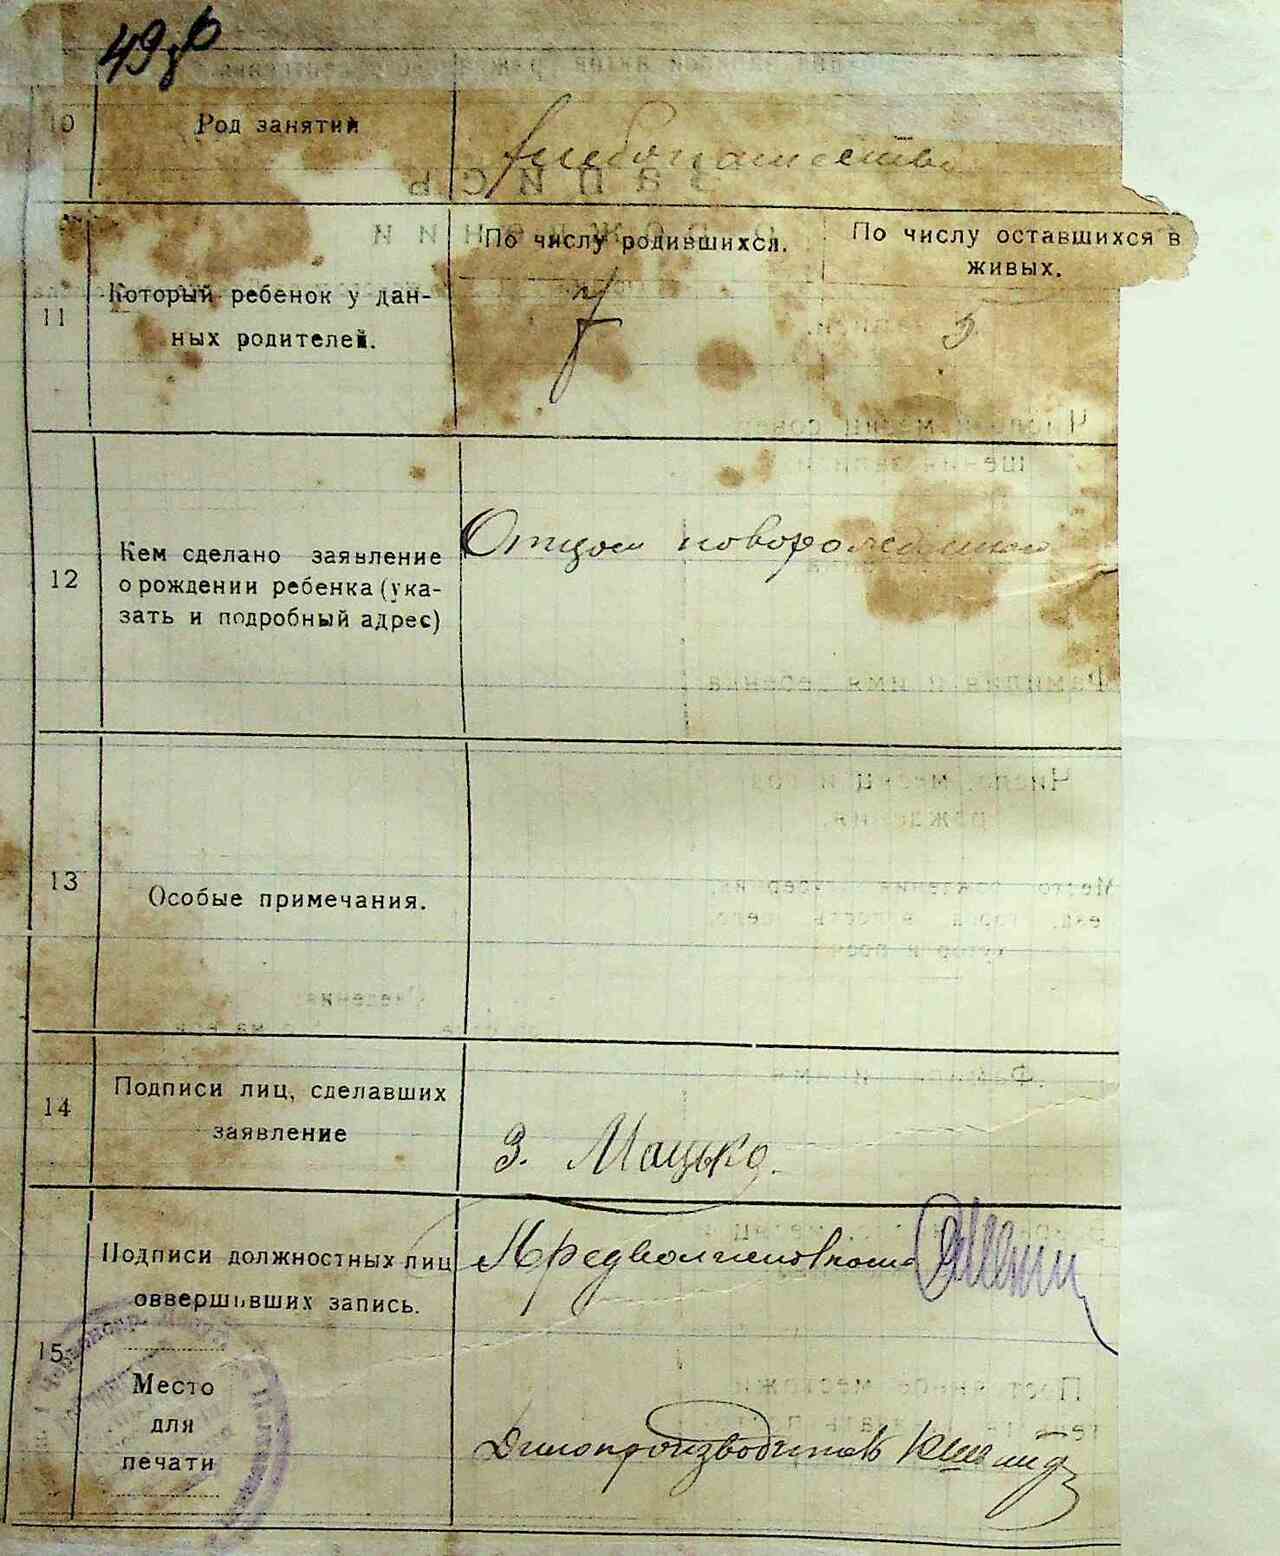 49 об
10
Род занятий
хлебопашество
11
Который ребенок у дан-
ных родителей.
По числу родившихся.
7
По числу оставшихся в
живых.
5
12
Кем сделано заявление
о рождении ребенка (ука-
зать и подробный адрес)
Отцом новорожденного
13
Особые примечания.
14
Подписи лиц, сделавших
заявление
З. Мацько.
15
Подписи должностных лиц
оввершивших запись.
Предволисполкома
Место
для
печати
Делопроизводитель